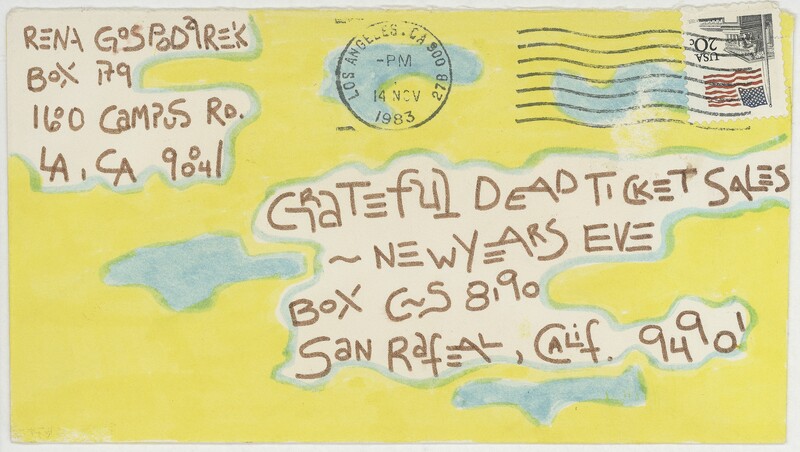 RENA GOSPODAREK
BOX 179
1600 CAMPUS RD.
LA, CA 90041
LOS ANGELES, CA 900
PM
14 NOV
1983
27B
USA
20c
GRATEFUL DEAD TICKET SALES
~ NEW YEARS EVE
BOX C~S 8190
SAN RAFEAL, CALIF. 94901